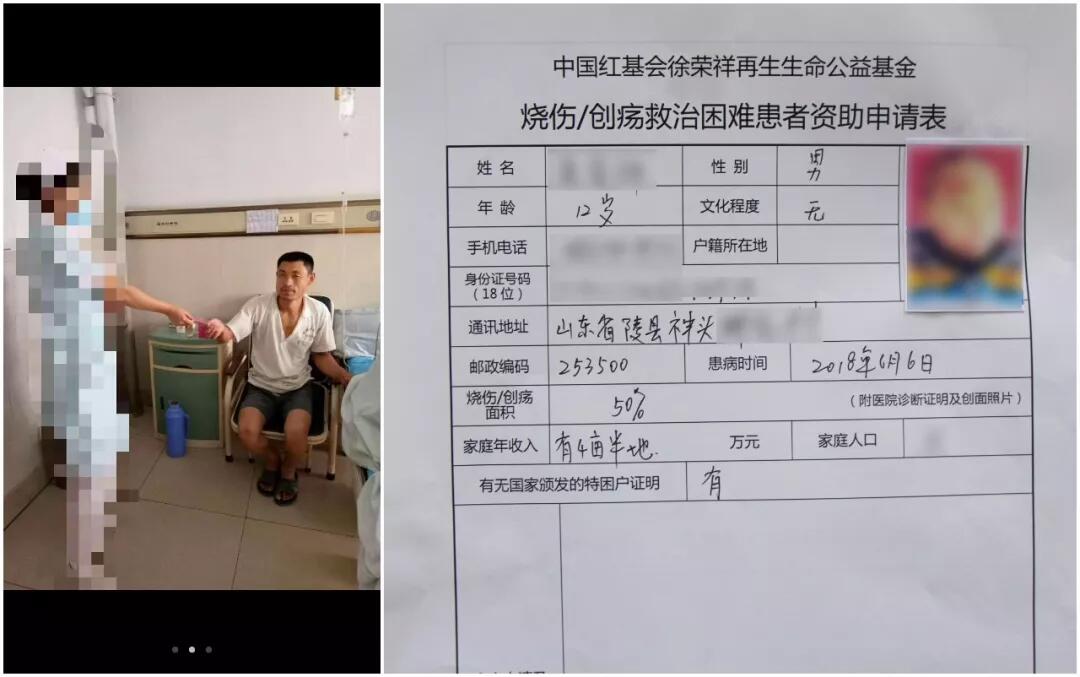 中国红基会徐荣祥再生生命公益基金
烧伤/创疡救治困难患者资助申请表
姓 名
性 别 男
年 龄 12岁 文化程度 无
手机电话 户籍所在地
身份证号码
(18位)
通讯地址 山东省陵县神头
邮政编码 253500 患病时间 2018年6月6日
烧伤/创疡
面积 50% (附医院诊断证明及创面照片)
家庭年收入 有4亩半地 万元 家庭人口
有无国家颁发的特困户证明 有